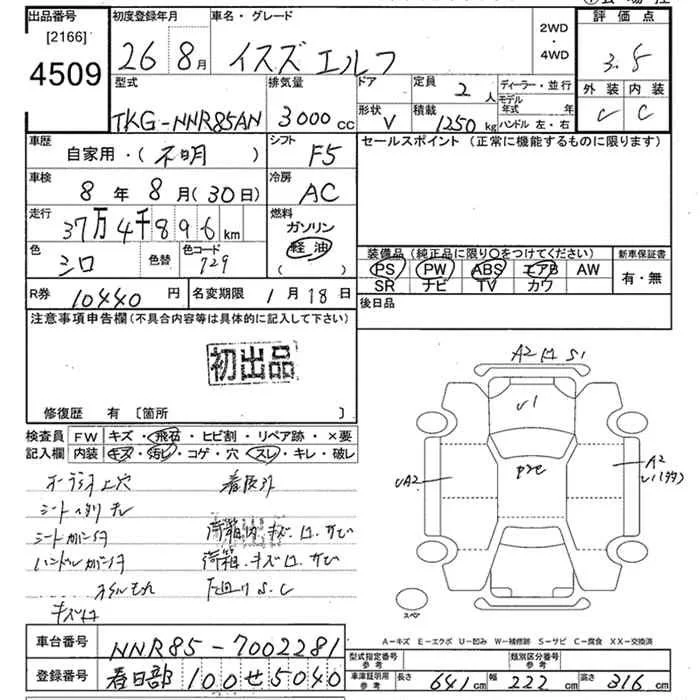 出品番号
[2166]
4509
初度登録年月
26 8月
車名・グレード
イスズ エルフ
2WD
・
4WD
評価点
3.5
型式
TKG-NNR85AN
排気量
3000cc
ドア
形状
V
定員
2人
積載
1250kg
ディーラー・並行
モデル年式 年
ハンドル 左・右
外装 内装
C
車歴
自家用・(不明)
シフト
F5
セールスポイント(正常に機能するものに限ります)
車検
8年8月(30日)
冷房
AC
走行
37万4千896km
燃料
ガソリン
軽油
( )
色
シロ
色替
色コード
729
装備品(純正品に限り○をつけてください)
PS PW ABS エアB AW
SR ナビ TV カワ
新車保証書
有・無
R券
10440円
名変期限
1月18日
後日品
注意事項申告欄(不具合内容等は具体的に記入して下さい)
初出品
修復歴 有 [箇所 ]
検査員記入欄
FW キズ・飛石・ヒビ割・リペア跡・×要
内装 キズ・汚レ・コゲ・穴・スレ・キレ・破レ
シートカバー付
ハンドルカバー付
下回りS.C
A2
S1
U1
A2
スペア
A-キズ E-エクボ U-凹み W-補修跡 S-サビ C-腐食 XX-交換済
車台番号
NNR85-7002281
登録番号
春日部 100せ5040
型式指定番号
参考
類別区分番号
参考
車検証明用
参考
長さ 641cm 幅 222cm 高さ 316cm